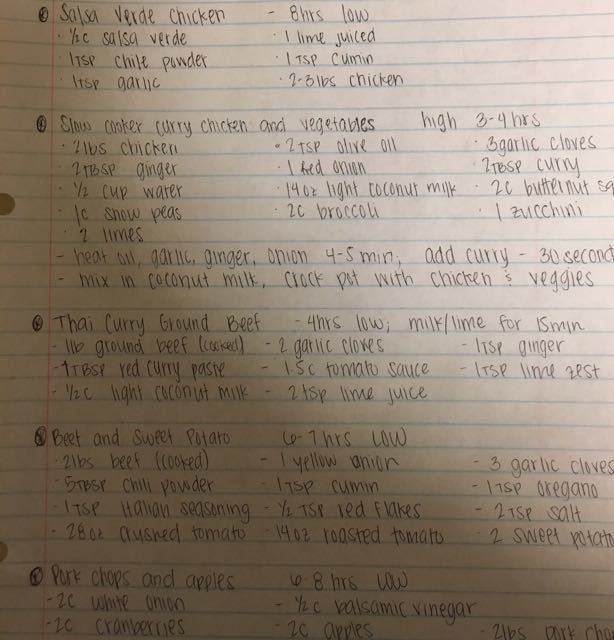 Salsa Verde Chicken - 8hrs low
· ½c salsa verde · 1 lime juiced
· 1tsp chile powder · 1tsp cumin
· 1tsp garlic · 2-3lbs chicken
Slow cooker curry chicken and vegetables high 3-4hrs
· 2lbs chicken · 2tsp olive oil · 3garlic cloves
· 2TBSP ginger · 1 red onion · 2TBSP curry
· ½ cup water · 14oz light coconut milk · 2c butternut sq
· 1c snow peas · 2c broccoli · 1 zucchini
· 2 limes
- heat oil, garlic, ginger, onion 4-5 min; add curry - 30 second
- mix in coconut milk, crock pot with chicken & veggies
Thai Curry Ground Beef - 4hrs low; milk/lime for 15min
- 1lb ground beef (cooked) - 2 garlic cloves - 1tsp ginger
- 1TBSP red curry paste - 1.5c tomato sauce - 1tsp lime zest
- ½c light coconut milk - 2tsp lime juice
Beef and Sweet Potato 6-7hrs low
· 2lbs beef (cooked) - 1 yellow onion - 3 garlic cloves
- 5TBSP chili powder - 1tsp cumin - 1tsp oregano
- 1tsp Italian seasoning - ½ tsp red flakes - 2tsp salt
- 28oz crushed tomato - 14oz roasted tomato - 2 sweet potato
Pork chops and apples 6-8hrs low
- 2c white onion - ½c balsamic vinegar
- 2c cranberries - 2c apples - 2lbs pork cho